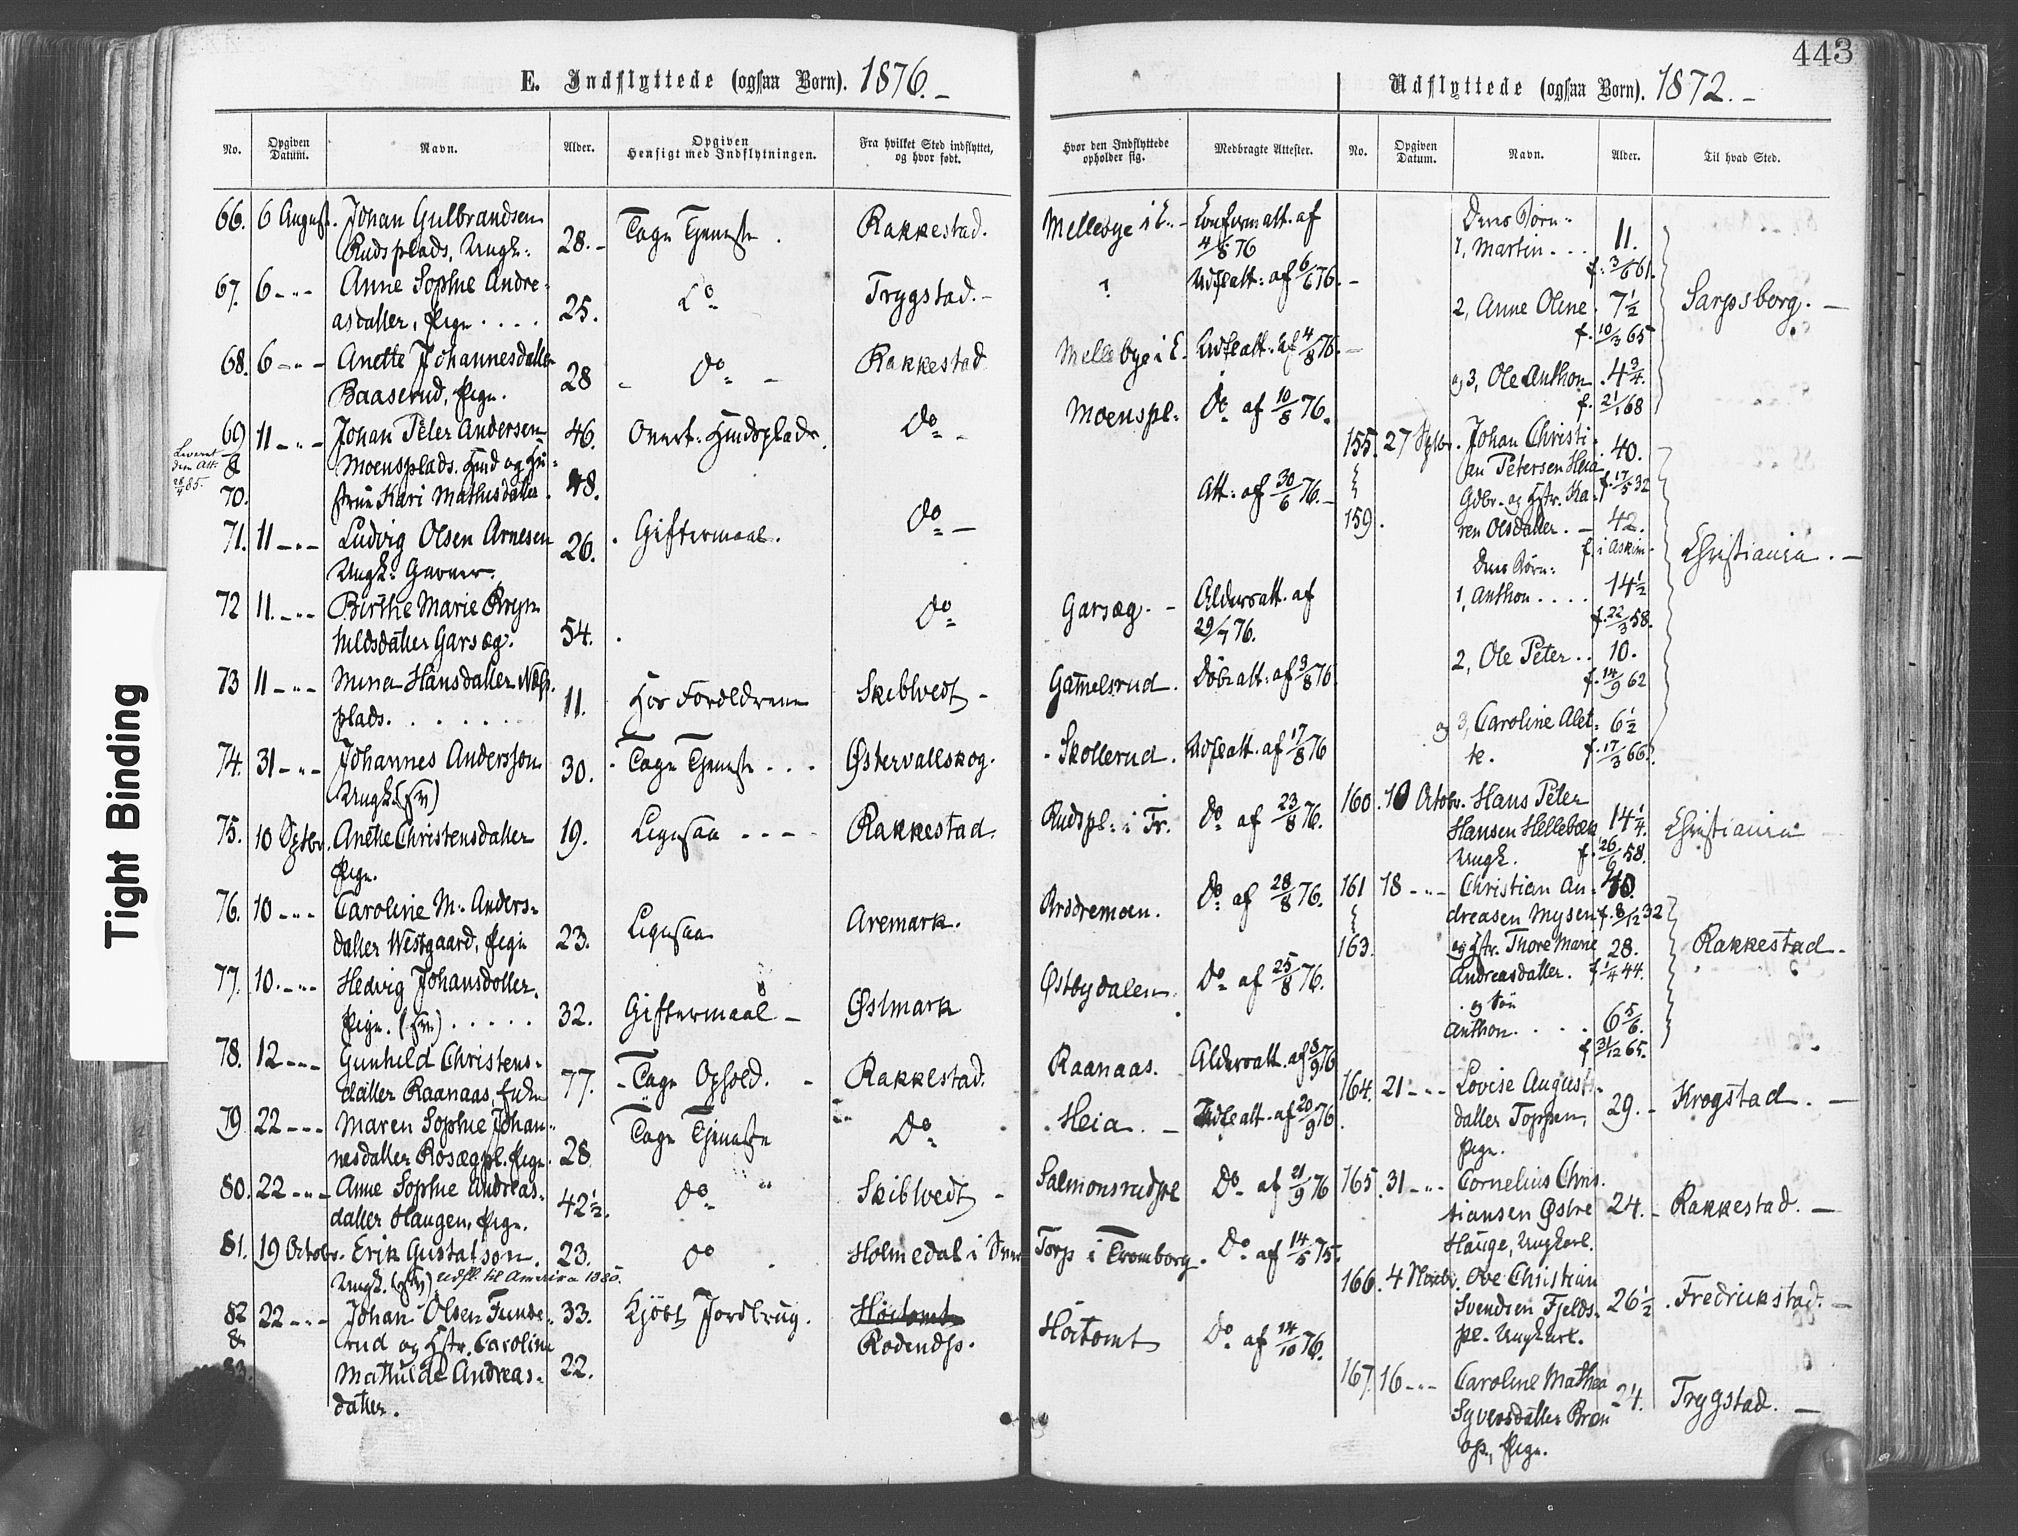 443
E. Indflyttede (ogsaa Børn). 1876.
No.
Opgiven Datum.
Navn.
Alder.
Opgiven Hensigt med Indflytningen.
Fra hvilket Sted indflyttet, og hvor født.
Hvor den Indflyttede opholder sig.
Medbragte Attester.
66. 6 August. Johan Gulbrandsen 28. Tage Tjeneste. Rakkestad. Mellebye i E. Confirm att. af
Rudsplads, Ungk: 4/8 76
67. 6 - " - Anne Sophie Andre- 25. Do Trygstad. ? Udfl att: af 6/6 76.
asdatter, Pige
68. 6 - " - Anette Johannesdatter 28 Do Rakkestad Mellebye i E. Udfl att. af 4/8 76.
Baaserud, Pige.
69 11 - " - Johan Peter Andersen 46. Overt. Huusplads. Do Moenspl: Do af 10/8 76.
& Moensplads. Huusm og Hu-
70. strue Kari Mathisdatter. 48. Att: af 30/6 76.
Leveret dem Att. 28/4 85.
71. 11 - " - Ludvig Olsen Arnesen 26. Giftermaal. Do
Ungk: Garver.
72 11. - " - Birthe Marie Bryn- 54. Do Garsæg. Aldersatt. af
hildsdatter Garsæg. 29/7 76.
73 11 - " - Mina Hansdatter Næs- 11. Hos Forældrene Skibtvedt Gamelsrud. Døbeatt: af 9/8 76
plads.
74. 31 - " - Johannes Andersson 30. Tage Tjeneste Østervallskog. Skollerud. Udfl att. af 17/8 76
Ungk. (sv)
75. 10 Septbr. Anette Christensdatter 19. Ligesaa Rakkestad. Rudspl: i Tr. Do af 23/8 76.
Pige.
76. 10 - " - Caroline M. Anders-
datter Westgaard, Pige 23. Ligesaa Aremark. Ruddremoen. Do af 28/8 76.
77. 10. - " - Hedvig Johansdotter,
Pige. (sv) 32. Giftermaal Østmark Østbydalen. Do af 25/8 76.
78. 12 - " - Gunhild Christens-
datter Raanaas, Enke 77. Tage Ophold. Rakkestad. Raanaas. Aldersatt. af 8/9 76
79. 22 - " - Maren Sophie Johan-
nesdatter Rosægpl. Pige 28. Tage Tjeneste Do Heia. Udfl att. af 20/9 76.
80. 22 - " - Anne Sophie Andreas-
datter Haugen, Pige. 42½. Do Skibtvedt Salmonsrudpl Do af 21/9 76
81. 19 Octobr. Erik Gustafson. 23. Do Holmedal i Sver Torp i Tromborg. Do af 14/5 75.
Ungk. (sv). Udfl. til Amerika 1880.
82 22 - " - Johan Olsen Funde- 33. Kjøbt Jordbrug. Høitomt Høitomt Do af 14/10 76.
& rud og Hstr. Caroline Rødendss.
83. Mathilde Andreas- 22.
datter.
Udflyttede (ogsaa Børn). 1872.
No.
Opgiven Datum.
Navn.
Alder.
Til hvad Sted.
Deres Børn:
1, Martin 11. f. 3/6 61. Sarpsborg.
2, Anne Oline 7½ f. 10/3 65
og 3, Ole Anthon 4¾ f. 21/1 68
155. 27 Septbr. Johan Christi- 40.
an Petersen Heia f. 17/5 32
Gdbr. og Hstr. Ka-
159. ren Olsdatter. 42. f. i Askim Christiania.
Deres Børn:
1, Anthon 14½ f. 22/3 58.
2, Ole Peter 10. f. 14/9 62
og 3, Caroline Alet- 6½
te. f. 17/3 66.
160. 10 Octobr. Hans Peter
Hansen Hellebæk 14¼ Christiania
Ungk. f. 26/6 58.
161 18 - " - Christian An- 40
dreasen Mysen f. 8/12 32
163. og Hstr. Thore Marie 28. Rakkestad.
Andreasdatter. f. 1/4 44.
og Søn
Anthon. 6 5/6. f. 31/12 65.
164. 21 - " - Lovise August-
datter Toppen, 29. Krogstad.
Pige.
165. 31 - " - Cornelius Chris-
tiansen Østre 24. Rakkestad.
Hauge, Ungkarl.
166. 4 Novbr. Ove Christian
Svendsen Fjelds- 26½ Fredrikstad.
pl. Ungkarl.
167. 16 - " - Caroline Mathea
Syversdatter Bøn 24. Trygstad.
Pige.
Tight Binding